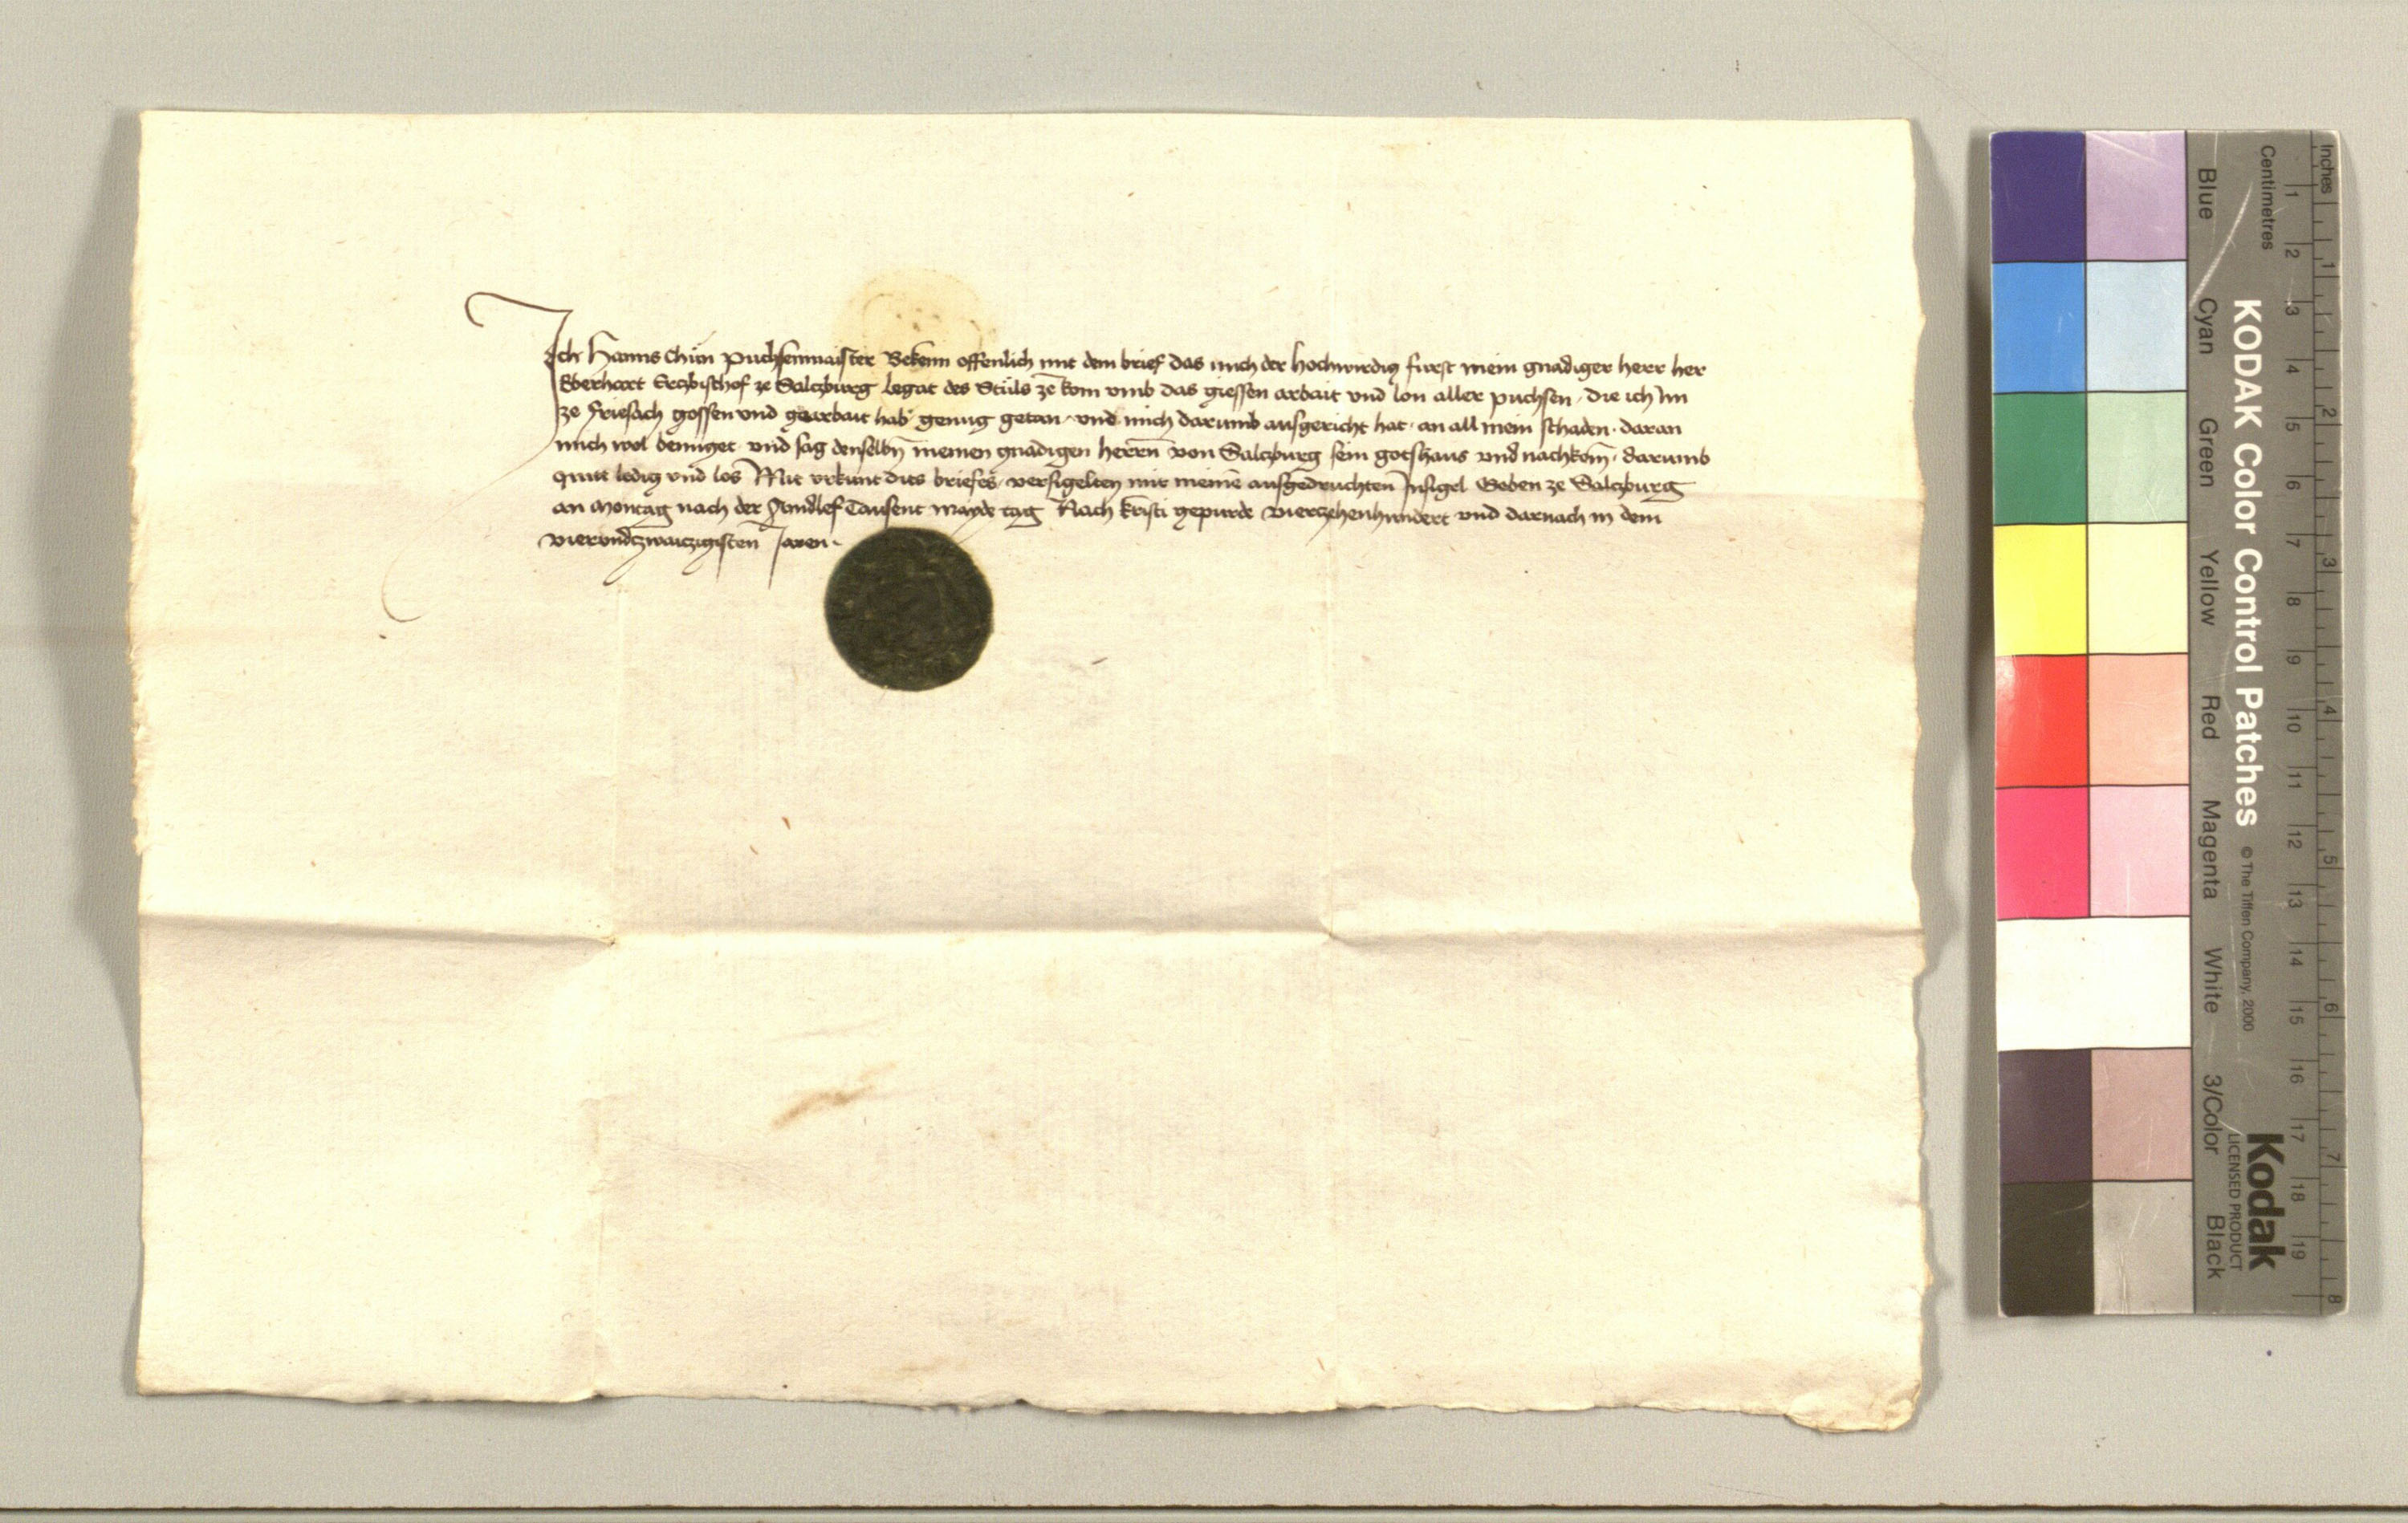 Ich Hanns Chün Puchsenmaister Bekenn offenlich mit dem brief das mich der hochwirdig fürst mein gnadiger herr her
Eberhart Erczbischof ze Salczburg legat des Stüls ze Rom vmb das giessen arbait vnd lon aller puchsen · die ich Im
ze Friesach gossen vnd gearbait hab genug getan · vnd mich darumb ausgericht hat · an all mein schaden · daran
mich wol benüget vnd sag denselbn̄ meinen gnadigen herrn̄ von Salczburg sein gotshaus vnd nachkom̄ · darumb
quitt ledig vnd los Mit vrkunt dits briefes · versigelten mit meinē aufgedruchten Insigel Geben ze Salczburg
an Montag nach der Aindlef Tausent mayde tag Nach kristi gepurde vierczehenhundert vnd darnach in dem
vierundczwaiczigisten Jaren ·
Inches
Centimetres
1 2 3 4 5 6 7 8
1 2 3 4 5 6 7 8 9 10 11 12 13 14 15 16 17 18 19
KODAK Color Control Patches
© The Tiffen Company, 2000
Kodak
LICENSED PRODUCT
Blue Cyan Green Yellow Red Magenta White 3/Color Black